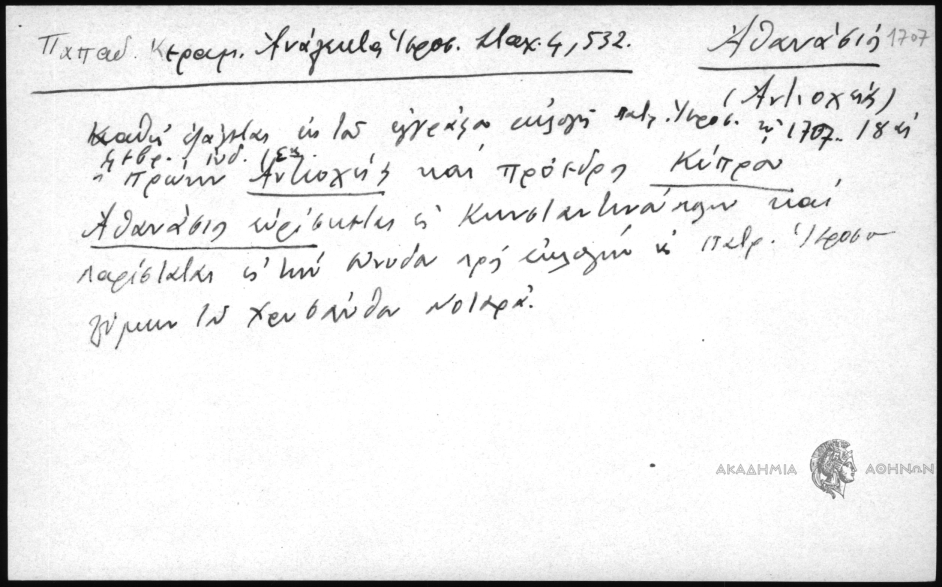 Παπαδ. Κεραμ. Ἀνάλεκτα Ἱεροσ. Σταχ. 4, 532.
Ἀθανάσιος 1707
(Ἀντιοχείας)
Καθὼς ἐκ τοῦ ἐγγράφου ἐκλογῆς πατρ. Ἱεροσ. 1707 18
Φεβρ. ἰνδ.
πρώην Ἀντιοχείας καὶ πρόεδρος Κύπρου
Ἀθανάσιος εὑρίσκεται ἐν Κωνσταντινουπόλει καὶ
παρίσταται εἰς τὴν σύνοδον πρὸς ἐκλογὴν πατρ. Ἱεροσο
λύμων τοῦ Χρυσάνθου Νοταρᾶ.
ΑΚΑΔΗΜΙΑ ΑΘΗΝΩΝ